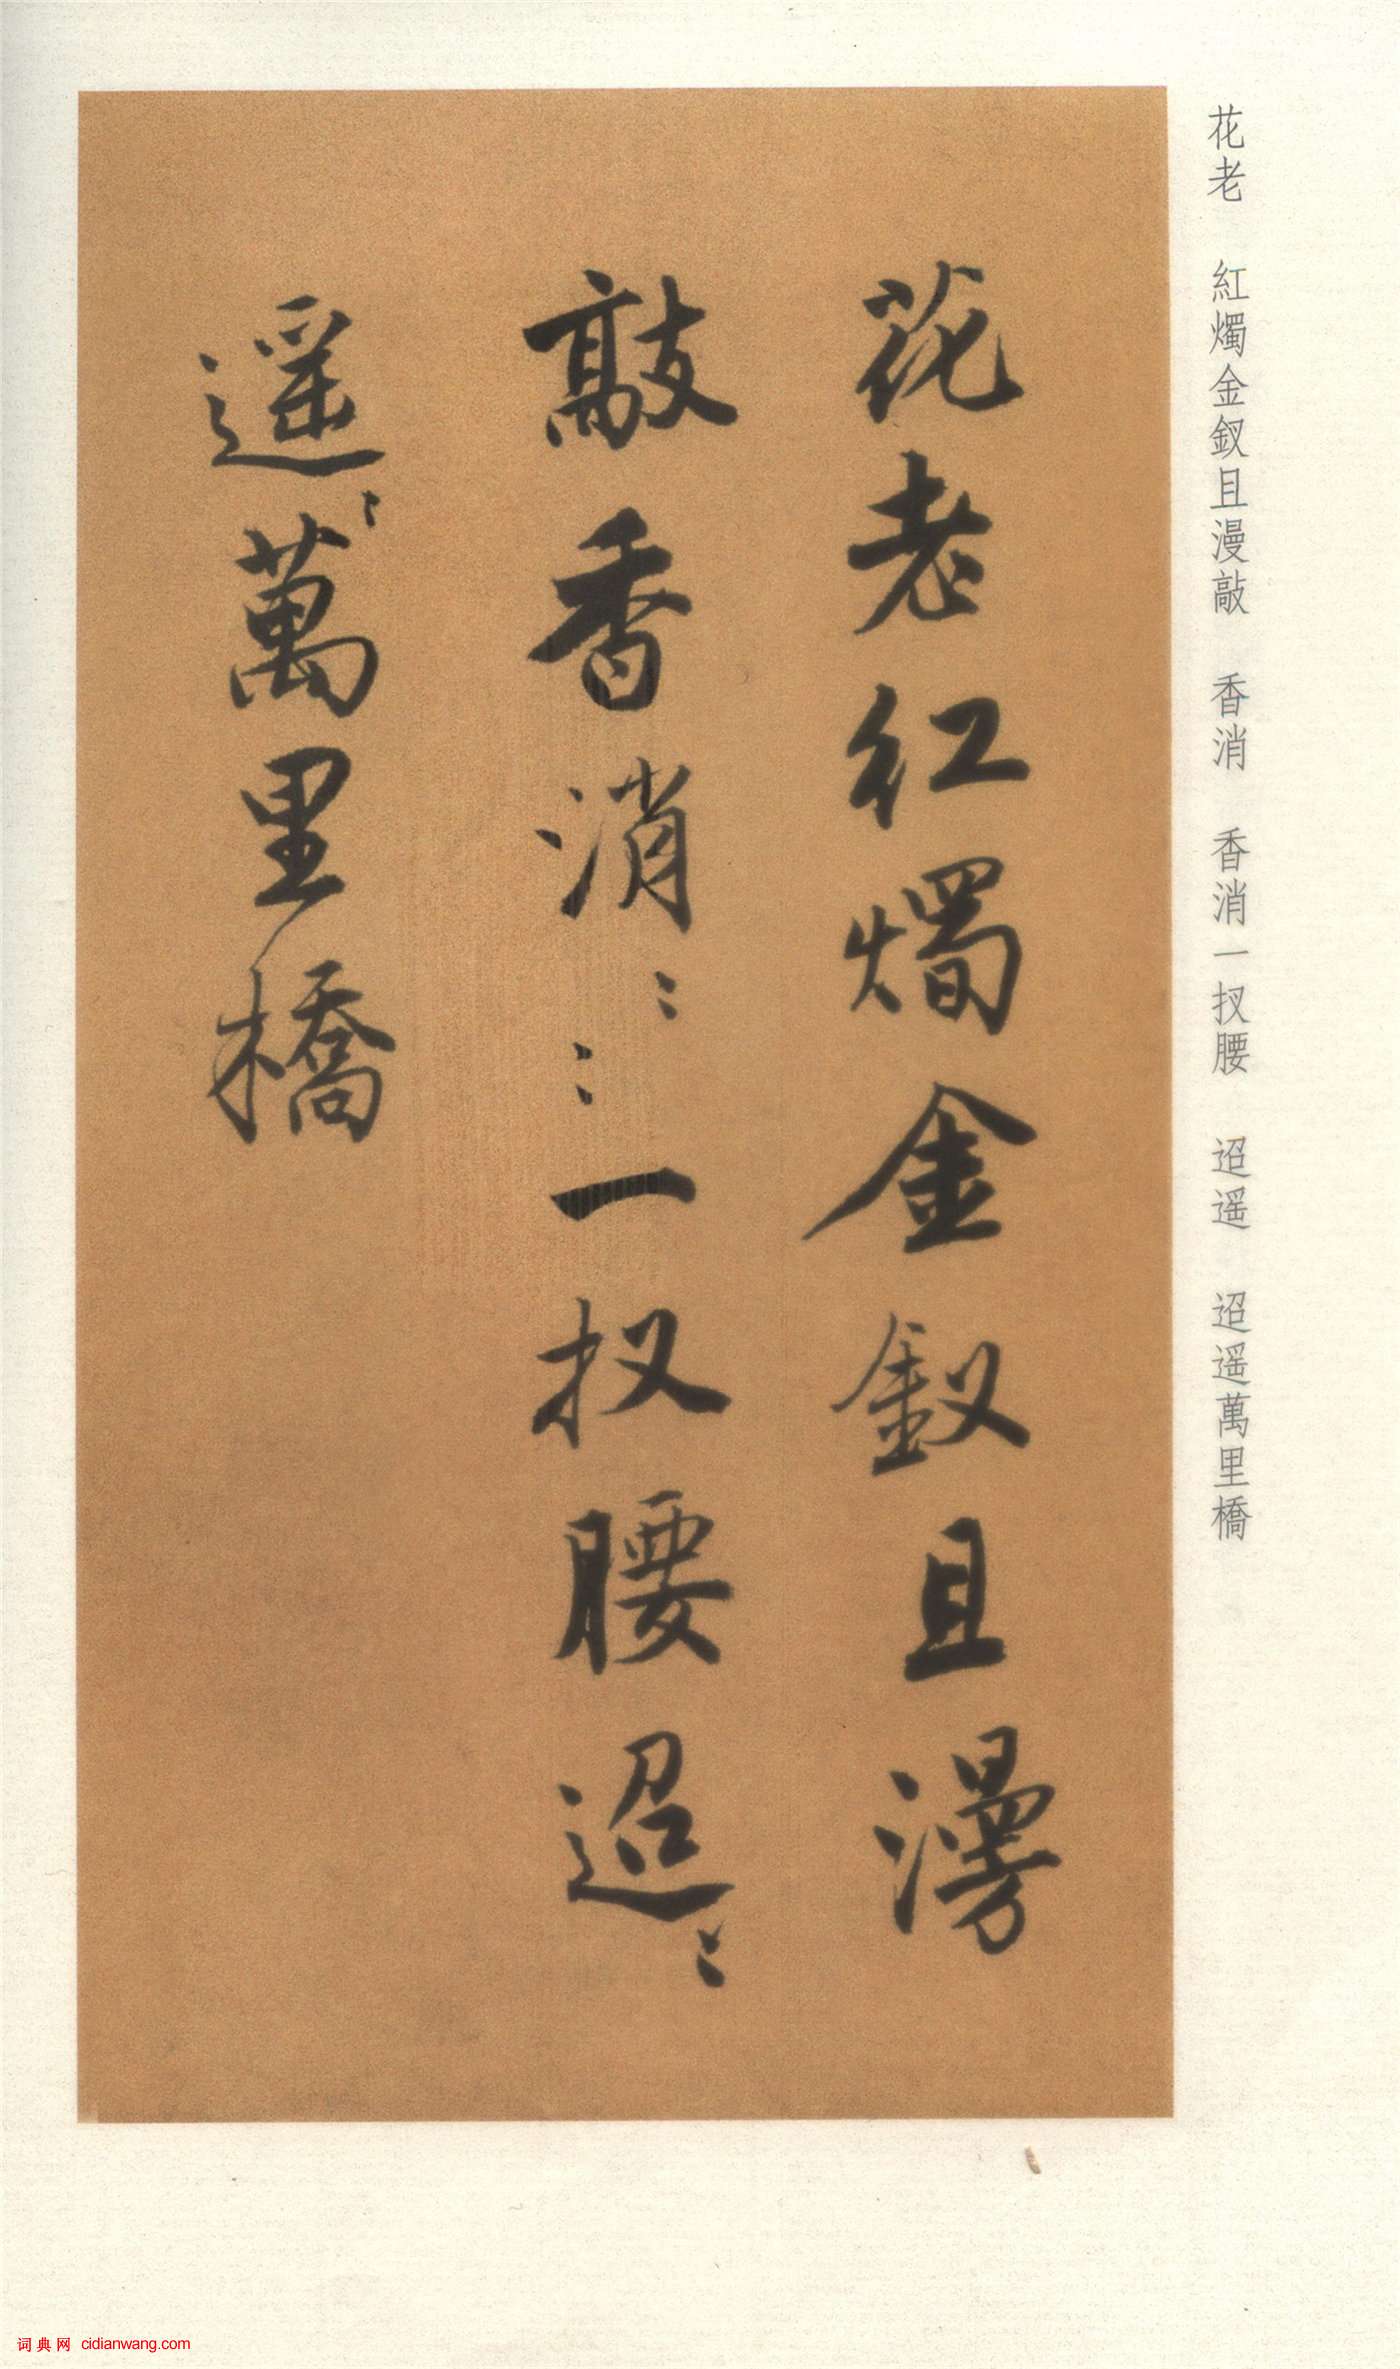 花老　紅燭金釵且漫敲　香消　香消一扠腰　迢遥　迢遥萬里橋
花老紅燭金釵且漫
敲香消〻〻一扠腰迢〻
遥〻萬里橋
词典网 cidianwang.com